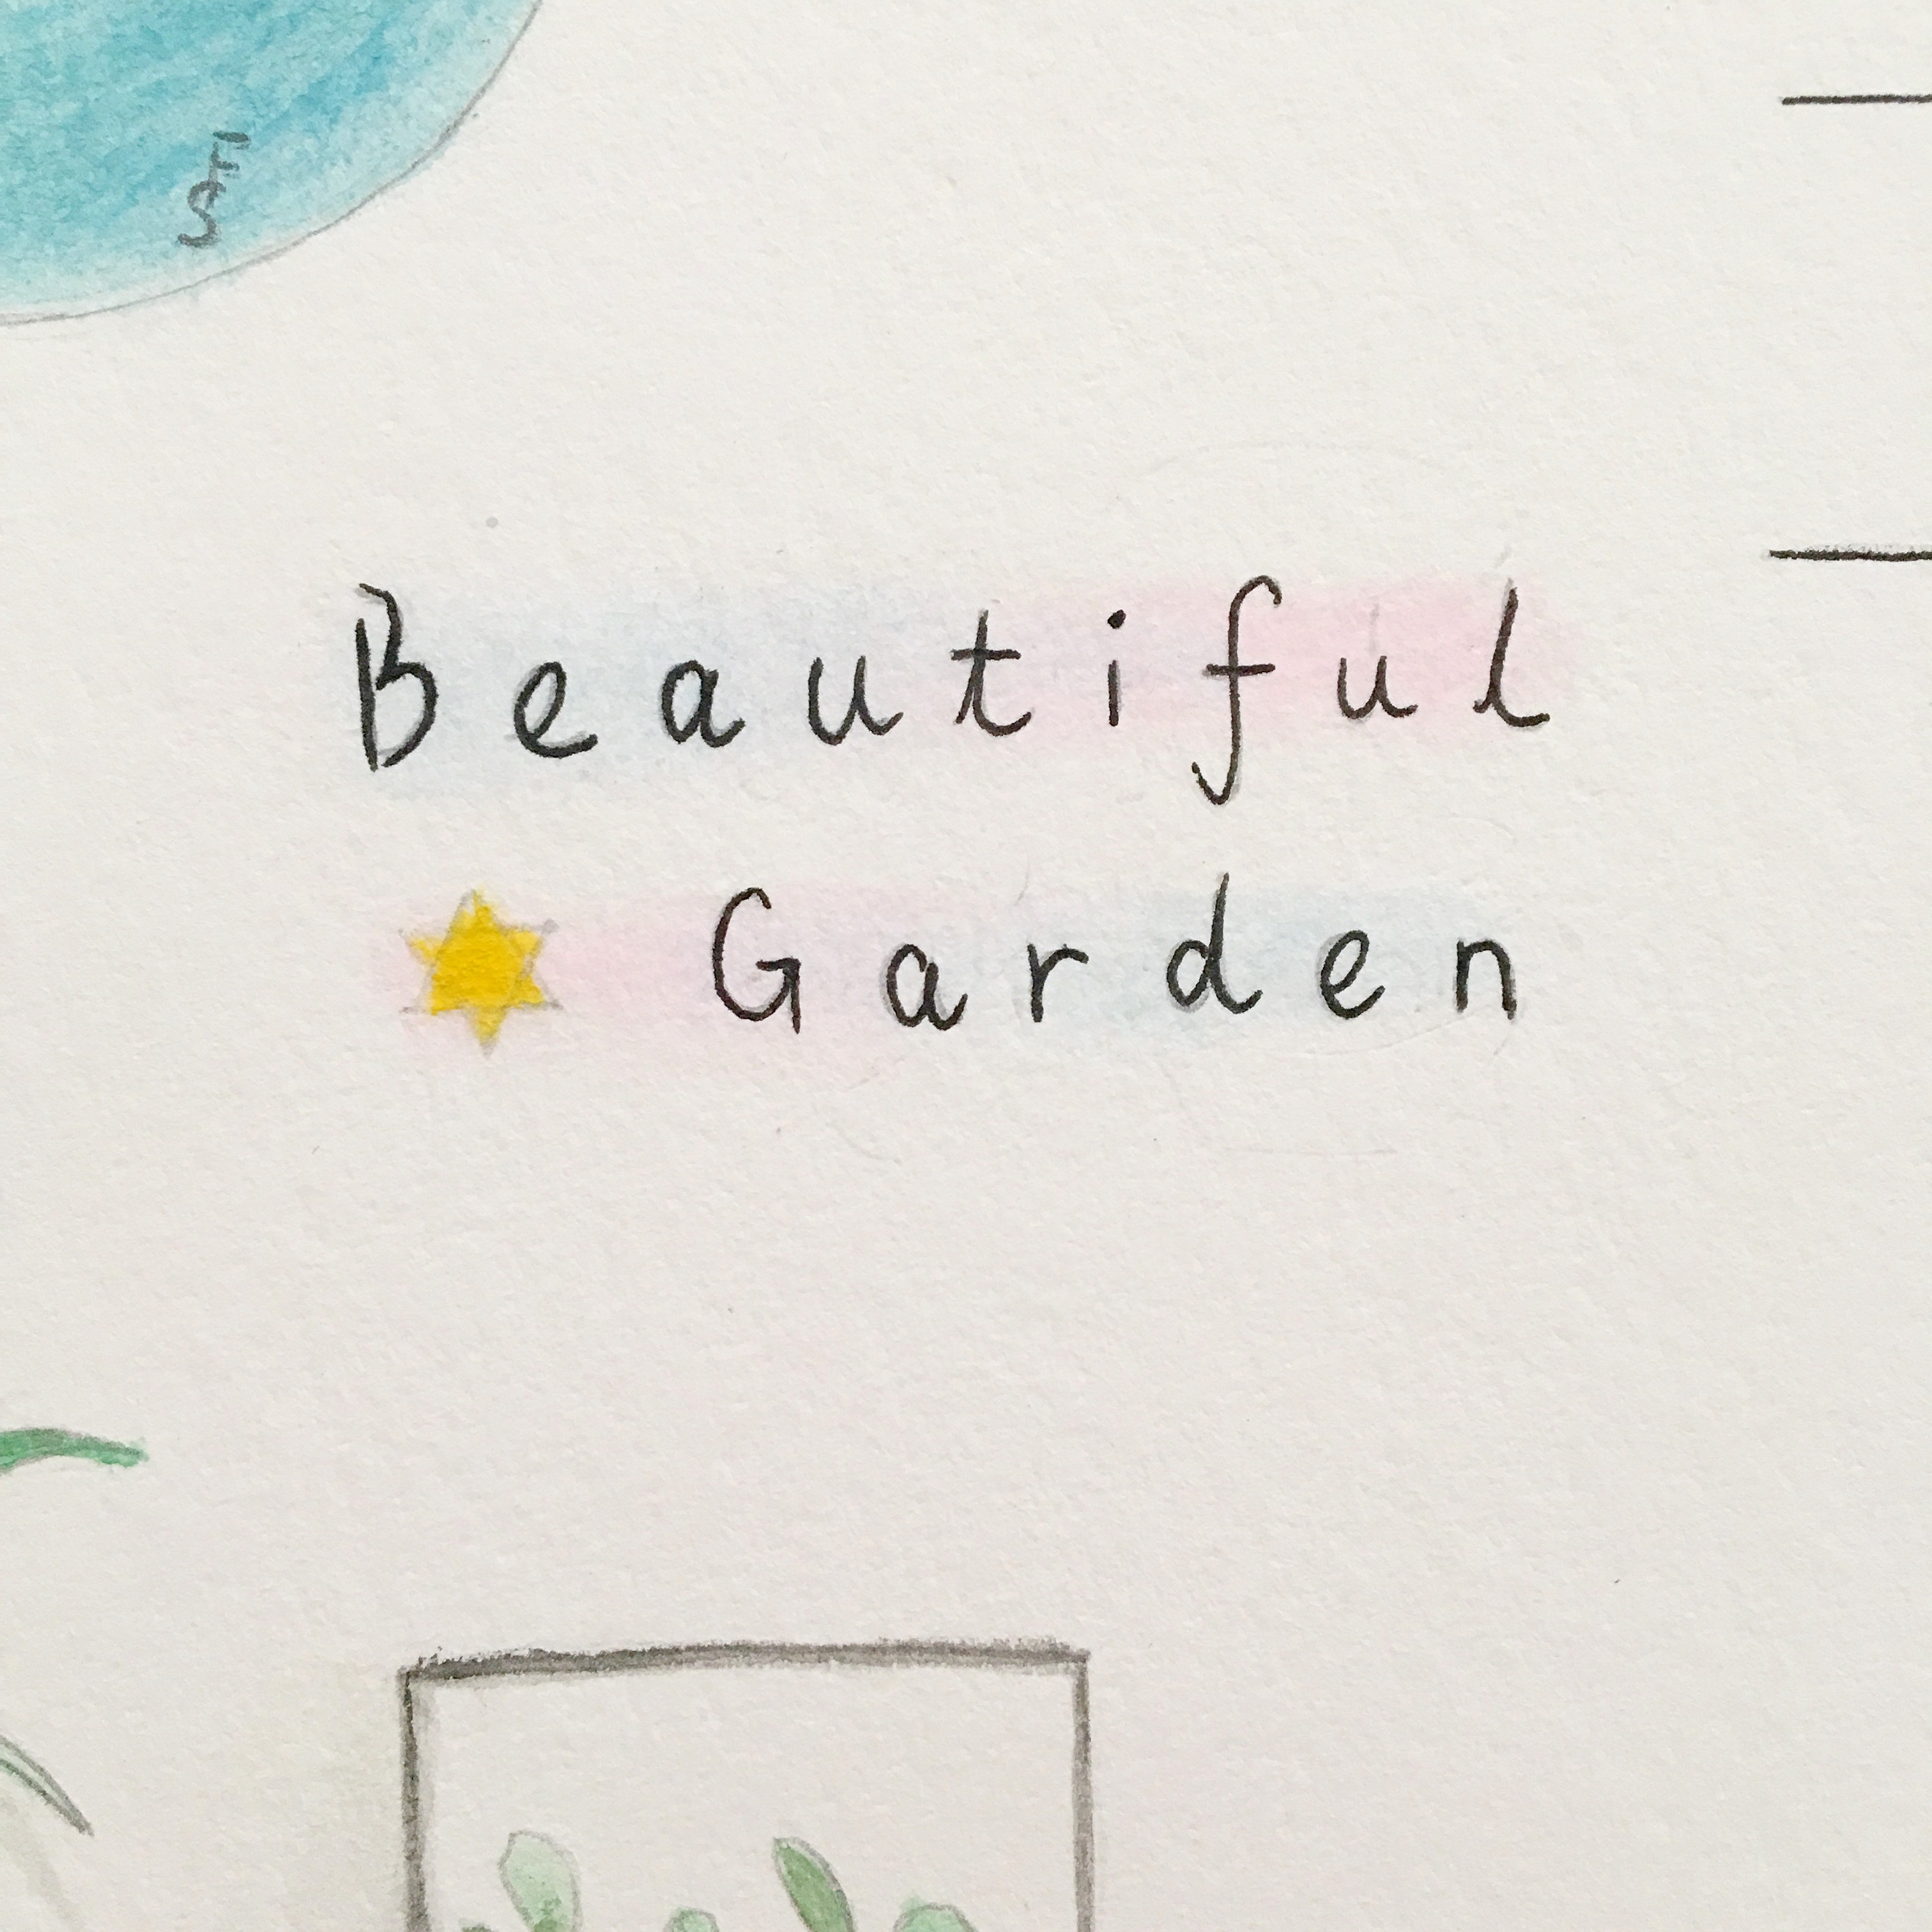 Beautiful
Garden